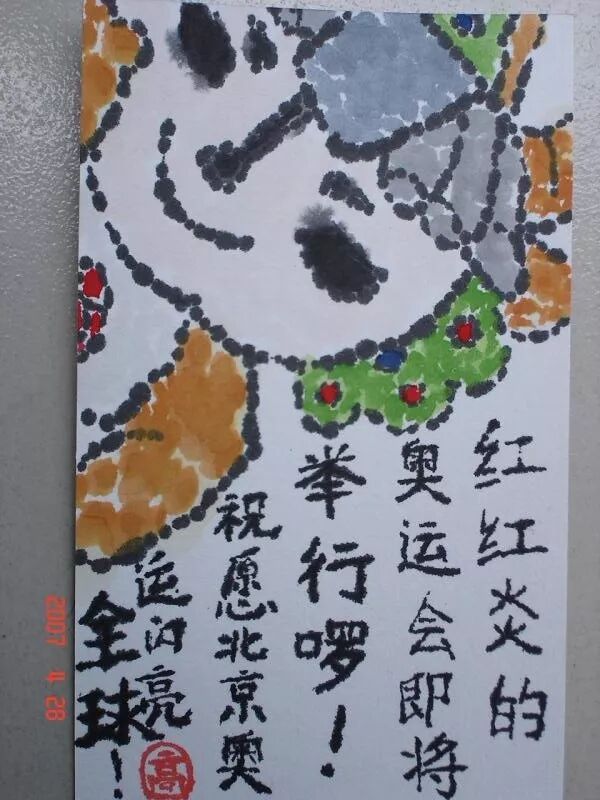 红红火火的
奥运会即将
举行啰！
祝愿北京奥
运闪亮
全球！
高
2007 4 28